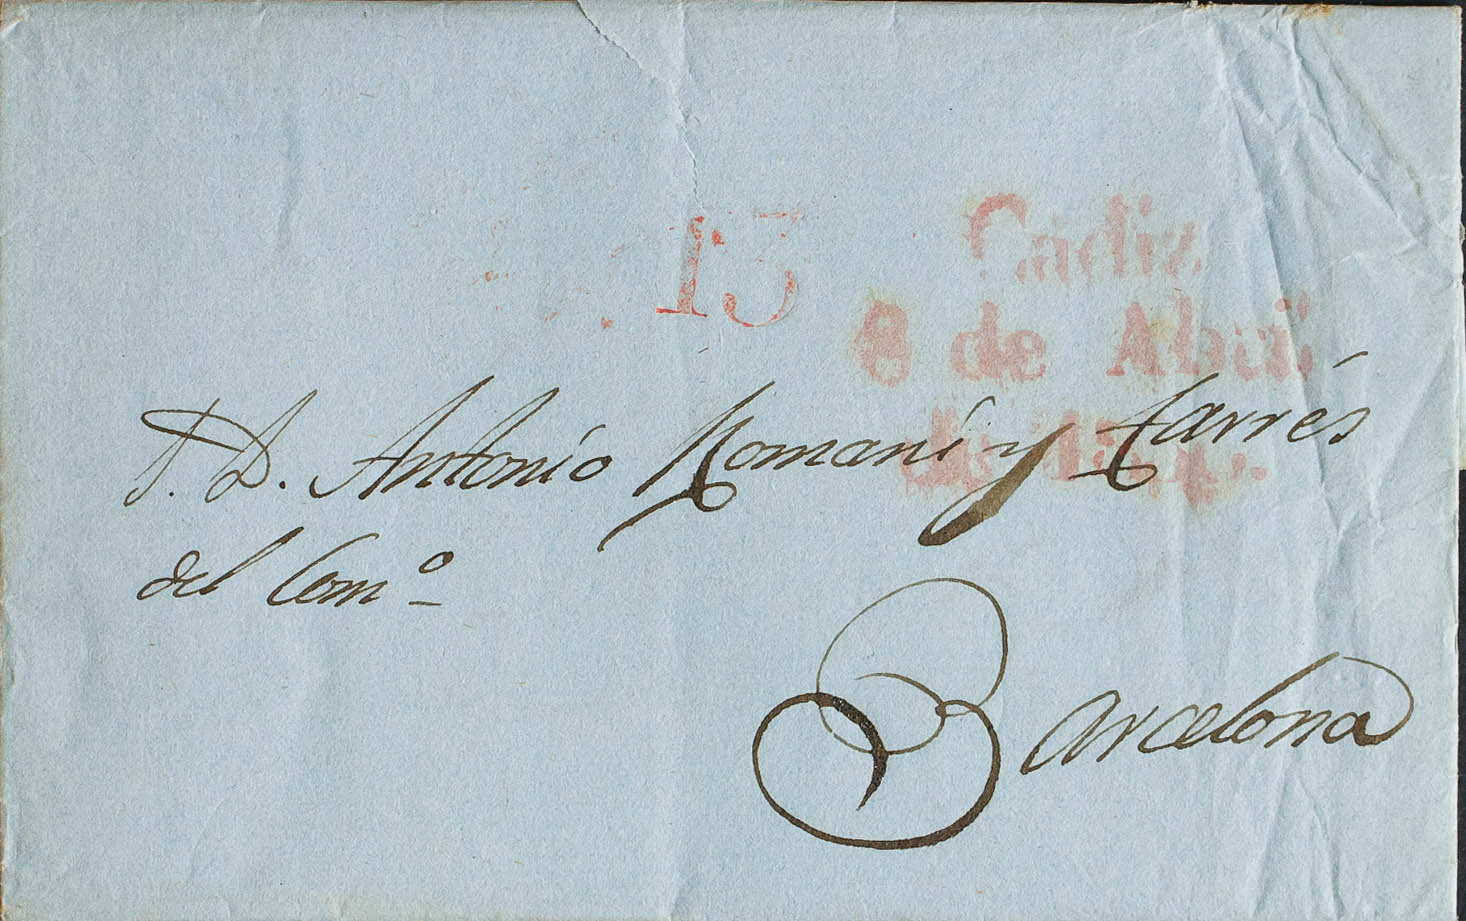 15
Cadiz
8 de Abril
de
S. D. Antonio Romaní y Tarrés
del Com.º
Barcelona